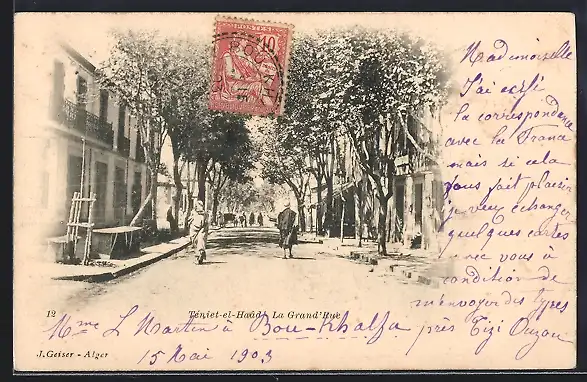 POSTES
10
BOU
Mademoiselle
J'ai cessé
la correspondance
avec la France
mais si cela
vous fait plaisir
je veux échanger
quelques cartes
avec vous à
condition de
m'envoyer des types
12 Téniet-el-Haâd, La Grand'Rue
Mme L Martin à Bou-Khalfa près Tizi Ouzou
J. Geiser - Alger
15 Mai 1903